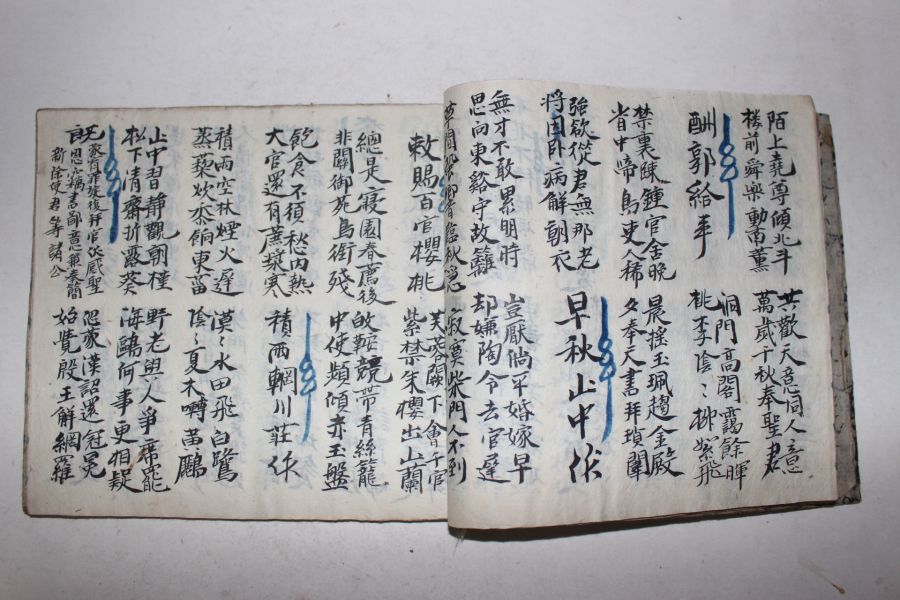 陌上堯尊傾北斗
樓前舜樂動南薰
共歡天意同人意
萬歲千秋奉聖君
酬郭給事
洞門高閣靄餘暉
桃李陰〻柳絮飛
禁裏踈鍾官舍晚
省中啼鳥吏人稀
晨搖玉珮趨金殿
夕奉天書拜瑣闈
強欲從君無那老
將因卧病解朝衣
早秋山中作
無才不敢累明時
思向東谿守故籬
豈厭尙平婚嫁早
却嫌陶令去官遲
草間
臨秋
寂寞柴門人不到
敕賜百官櫻桃
芙蓉闕下會千官
紫禁朱櫻出上蘭
總是寢園春薦後
非關御苑鳥銜殘
鞍競帶青絲籠
中使頻傾赤玉盤
飽食不須愁內熱
大官還有蔗漿寒
積雨輞川莊作
積雨空林煙火遲
蒸藜炊黍餉東菑
漠〻水田飛白鷺
陰〻夏木囀黃鸝
山中習靜觀朝槿
松下清齋折露葵
野老與人爭席罷
海鷗何事更相疑
旣蒙宥罪旋復拜官伏感聖
恩竊書鄙意兼奉簡
新除使君等諸公
忽蒙漢詔還冠冕
始覺殷王解網羅